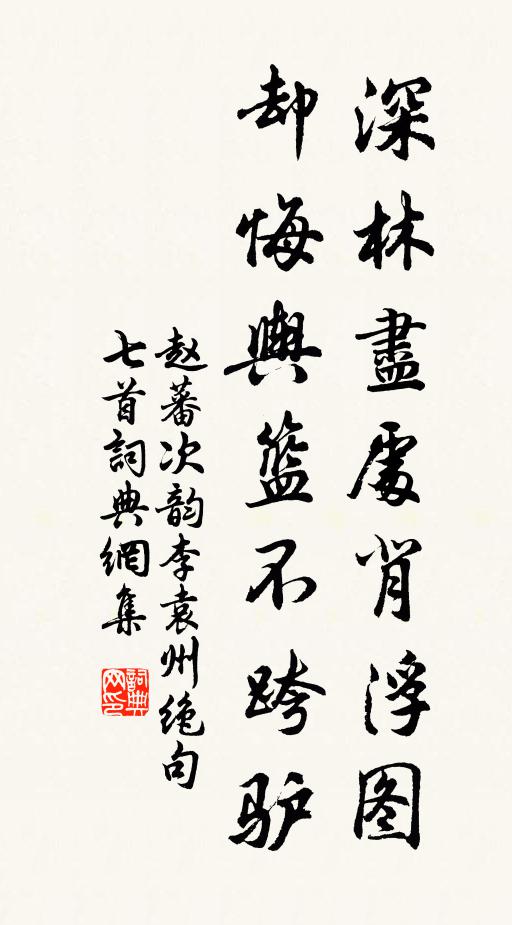 深林盡處肖浮图
却悔輿籃不跨驴
赵蕃次韵李袁州绝句
七首詞典網集
詞典网印